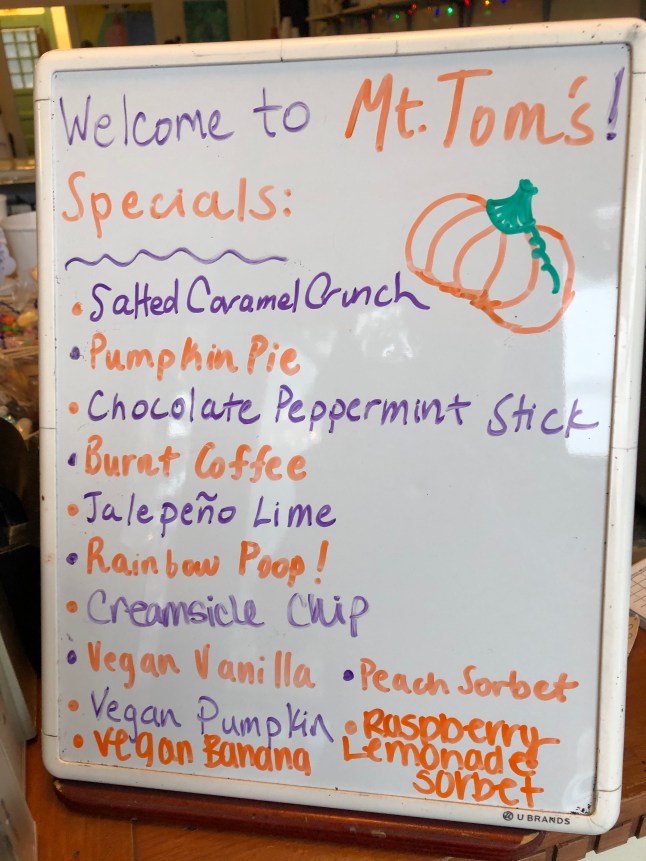 Welcome to Mt. Tom's!
Specials:
• Salted Caramel Crunch
• Pumpkin Pie
• Chocolate Peppermint Stick
• Burnt Coffee
• Jalepeño Lime
• Rainbow Poop!
• Creamsicle Chip
• Vegan Vanilla
• Vegan Pumpkin
• Vegan Banana
• Peach Sorbet
• Raspberry
Lemonade
sorbet
U BRANDS